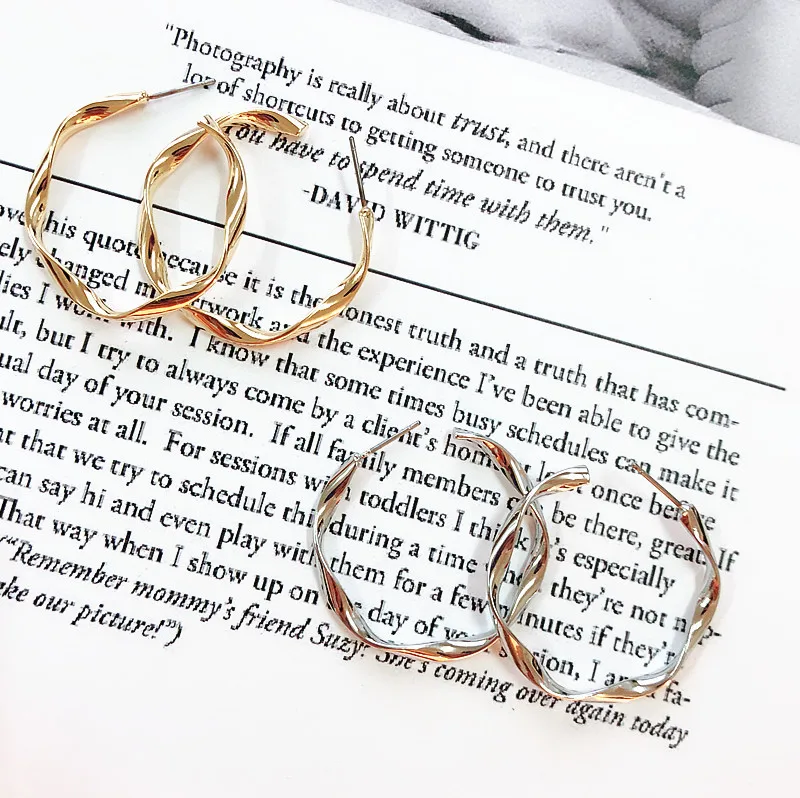 "Photography is really about trust, and there aren't a
lot of shortcuts to getting someone to trust you.
You have to spend time with them."
-DAVID WITTIG
his quote because it is the honest truth and a truth that has com-
changed my work and the experience I've been able to give the
I work with. I know that some times busy schedules can make it
but I try to always come by a client's home at least once before
day of your session. If all family members can be there, great. If
worries at all. For sessions with toddlers I think it's especially
that we try to schedule this during a time when they're not nap-
can say hi and even play with them for a few minutes if they're
That way when I show up on the day of your session, I am a fa-
("Remember mommy's friend Suzy? She's coming over again today
our picture!")